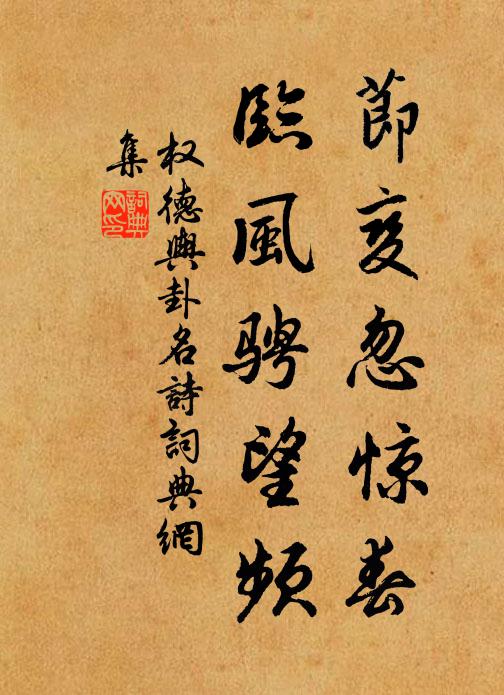 莭变忽惊春
臨風骋望频
权德舆卦名詩詞典網
集
詞典网印